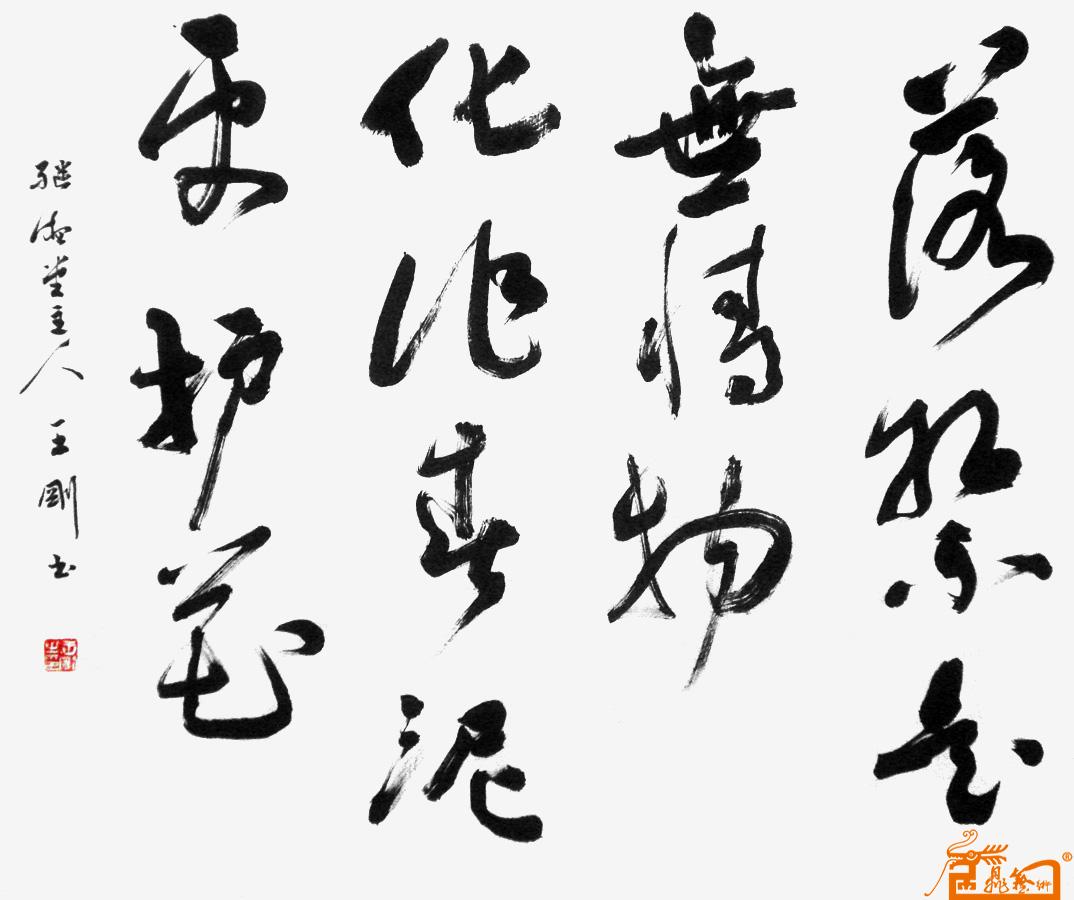 落红不是
無情物
化作春泥
更护花
继堂主人王剛书